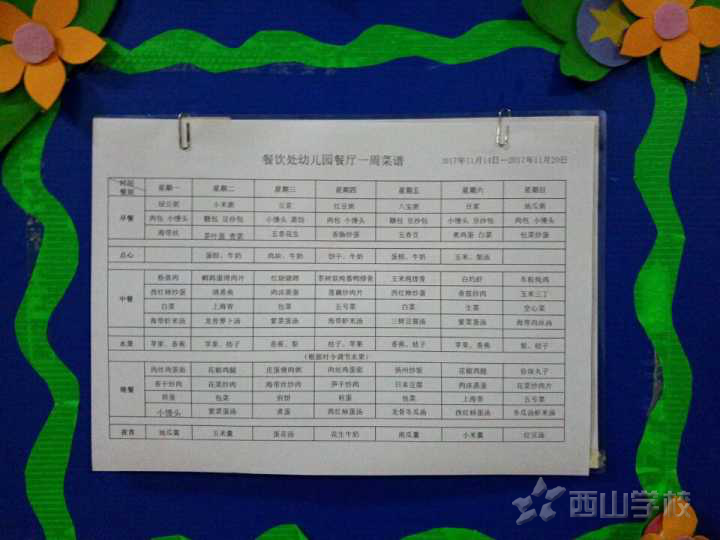 餐饮处幼儿园餐厅一周菜谱 2017年11月14日—2017年11月20日
时间 餐别 星期一 星期二 星期三 星期四 星期五 星期六 星期日
早餐 绿豆粥 小米粥 豆浆 红豆粥 八宝粥 豆浆 地瓜粥
肉包 小馒头 糖包 豆沙包 小馒头 蒸饺 肉包 小馒头 糖包 豆沙包 小馒头 豆沙包 肉包 小馒头
海带丝 茶叶蛋 青菜 五香花生 香肠炒蛋 五香豆 煮鸡蛋 白菜 包菜炒蛋
点心 蛋糕、牛奶 饼干、牛奶 蛋糕、牛奶
中餐 粉蒸肉 红烧猪蹄 白灼虾
西红柿炒蛋 肉沫蒸蛋 莲藕炒肉片 西红柿炒蛋 香菇炒肉 玉米三丁
白菜 上海青 包菜 五号菜 白菜 生菜 空心菜
海带虾米汤 龙骨萝卜汤 紫菜蛋汤 海带虾米汤 三鲜豆腐汤 紫菜蛋汤 海带肉丝汤
水果 苹果、香蕉 苹果、桔子 香蕉、梨 桔子、苹果 香蕉、桔子 苹果、香蕉 梨、桔子
(根据时令调节水果)
晚餐 肉丝鸡蛋面 花椒鸡腿 皮蛋瘦肉粥 肉丝鸡蛋面 扬州炒饭 花椒鸡腿
香干炒肉 花菜炒肉 海带丝炒肉 笋干炒肉 日本豆腐 肉沫蒸蛋 花菜炒肉片
煎蛋 包菜 煎饼 煎蛋 包菜 上海青 五号菜
小馒头 紫菜蛋汤 煮蛋 西红柿蛋汤 龙骨冬瓜汤 西红柿蛋汤 冬瓜油虾米汤
夜宵 地瓜羹 玉米羹 蛋花汤 花生牛奶 南瓜羹 小米羹 红豆汤
西山学校